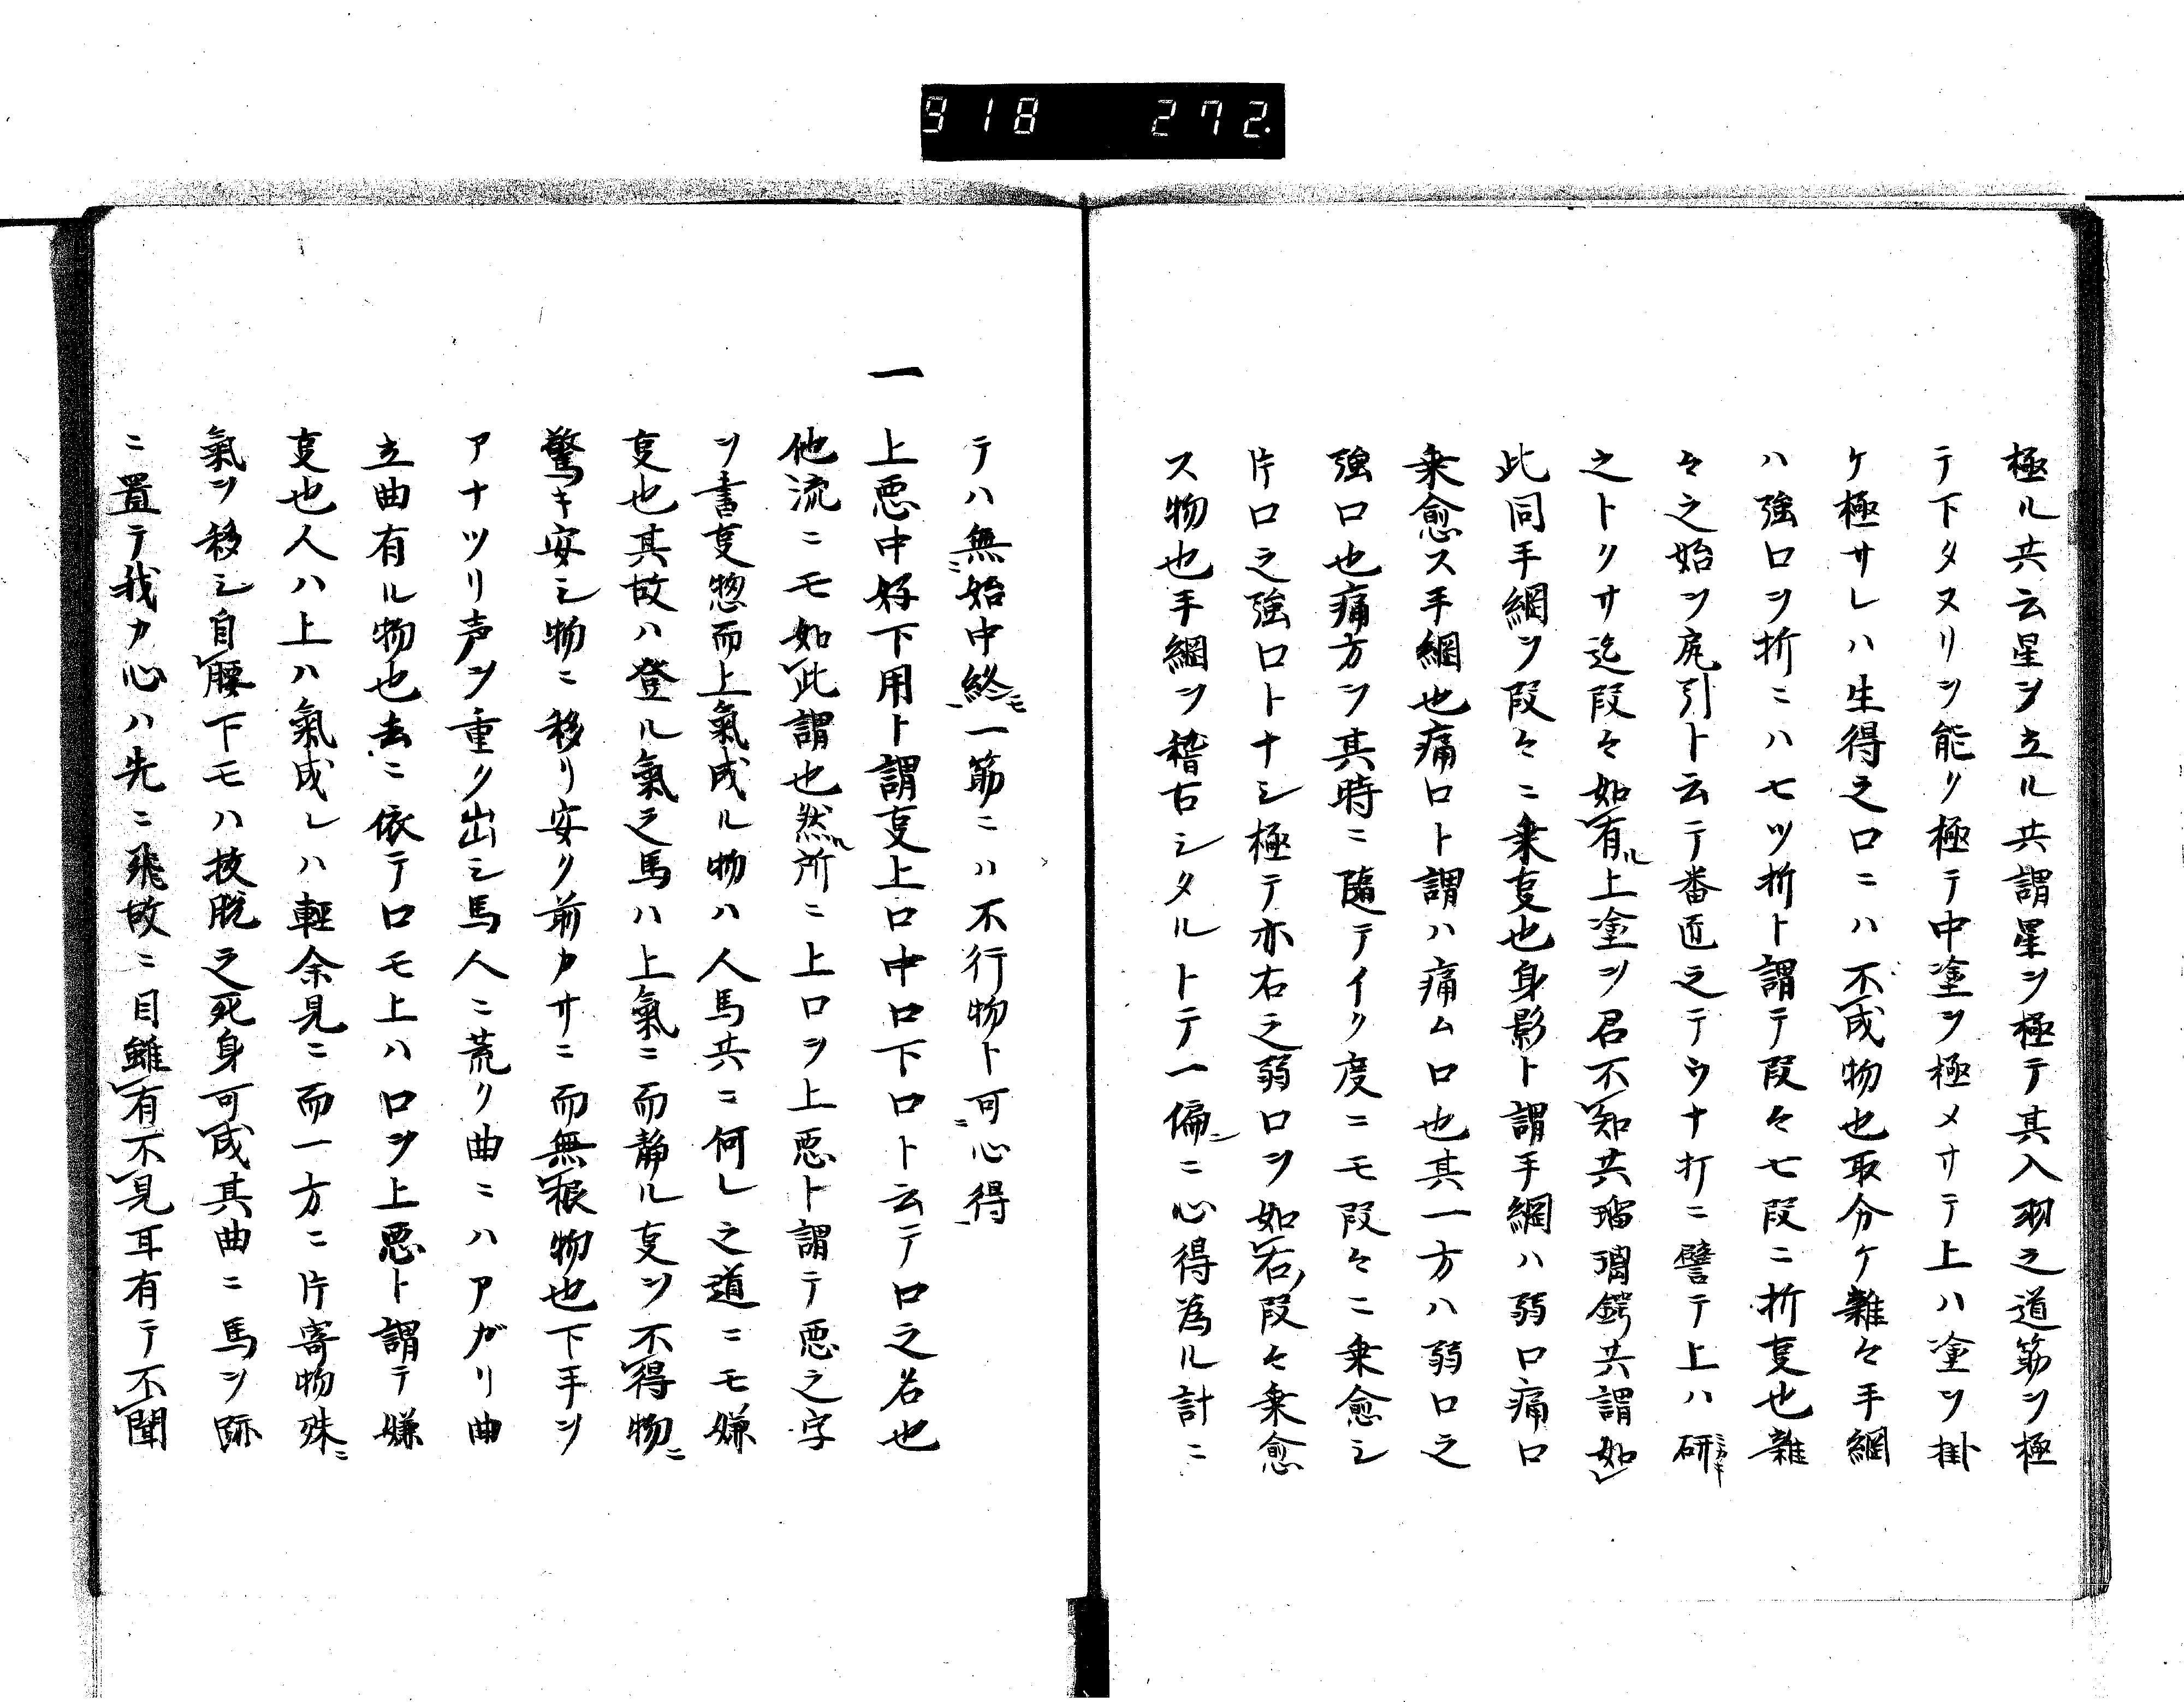 918 272.
極ル共云星ヲ立ル共謂星ヲ極テ其入羽之道筋ヲ極
テ下タヌリヲ能ク極テ中塗ヲ極メサテ上ハ塗ヲ掛
ケ極サレハ生得之口ニハ不成物也取分ケ雜々手綱
ハ強口ヲ折ニハ七ツ折ト謂テ段々七段ニ折叓也雜
々之始ヲ尻引ト云テ番匠之テウナ打ニ譬テ上ハ研
之トクサ迄段々如有ル上塗ヲ君不知共瑠璃鍔共謂如
此同手綱ヲ段々ニ乗叓也身影ト謂手綱ハ弱口痛口
乗愈ス手綱也痛口ト謂ハ痛ム口也其一方ハ弱口之
強口也痛方ヲ其時ニ随テイク度ニモ段々ニ乗愈シ
片口之強口トナシ極テ亦右之弱口ヲ如右段々乗愈
ス物也手綱ヲ稽古シタルトテ一偏ニ心得為ル計ニ
テハ無始中終モ一筋ニハ不行物ト可心得
一 上悪中好下用ト謂叓上口中口下口ト云テ口之名也
他流ニモ如此謂也然ル所ニ上口ヲ上悪ト謂テ悪之字
ヲ書叓惣而上氣成ル物ハ人馬共ニ何レ之道ニモ嫌
叓也其故ハ登ル氣之馬ハ上氣ニ而静ル叓ヲ不得物ニ
驚キ安シ物ニ移リ安ク前カサニ而無根物也下手ヲ
アナツリ声ヲ重ク出シ馬人ニ荒ク曲ニハアガリ曲
立曲有ル物也去ニ依テ口モ上ハ口ヲ上悪ト謂テ嫌
叓也人ハ上ハ氣成レハ輕余見ニ而一方ニ片寄物殊ニ
氣ヲ移シ自腰下モハ抜脱之死身可成其曲ニ馬ヲ跡
ニ置テ我カ心ハ先ニ飛故ニ目雖有不見耳有テ不聞